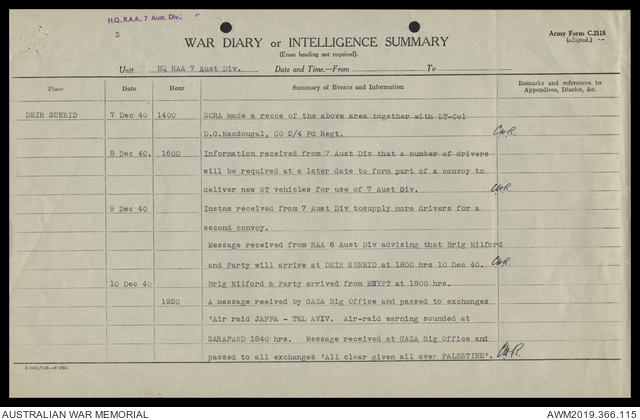 H.Q. R.A.A. 7 Aust. Div.
3
Army Form C.2118
(adapted.)
WAR DIARY or INTELLIGENCE SUMMARY
(Erase heading not required).
Unit HQ RAA 7 Aust Div. Date and Time.—From To
Place Date Hour Summary of Events and Information Remarks and references to
Appendices, Diaries, &c.
DEIR SUNEID 7 Dec 40 1400 SCRA made a recce of the above area together with LT-Col
D.O.Macdougal, CO 2/4 Fd Regt.
8 Dec 40. 1600 Information received from 7 Aust Div that a number of drivers
will be required at a later date to form part of a convoy to
deliver new MT vehicles for use of 7 Aust Div.
9 Dec 40 Instns received from 7 Aust Div tosupply more drivers for a
second convoy.
Message received from RAA 6 Aust Div advising that Brig Milford
and Party will arrive at DEIR SUNEID at 1800 hrs 10 Dec 40.
10 Dec 40 Brig Milford & Party arrived from EGYPT at 1800 hrs.
1920 A message reeived by GAZA Sig Office and passed to exchanges
'Air raid JAFFA - TEL AVIV. Air-raid warning sounded at
SARAFAND 1840 hrs. Message received at GAZA Sig Office and
passed to all exchanges 'All clear given all over PALESTINE'.
AUSTRALIAN WAR MEMORIAL AWM2019.366.115